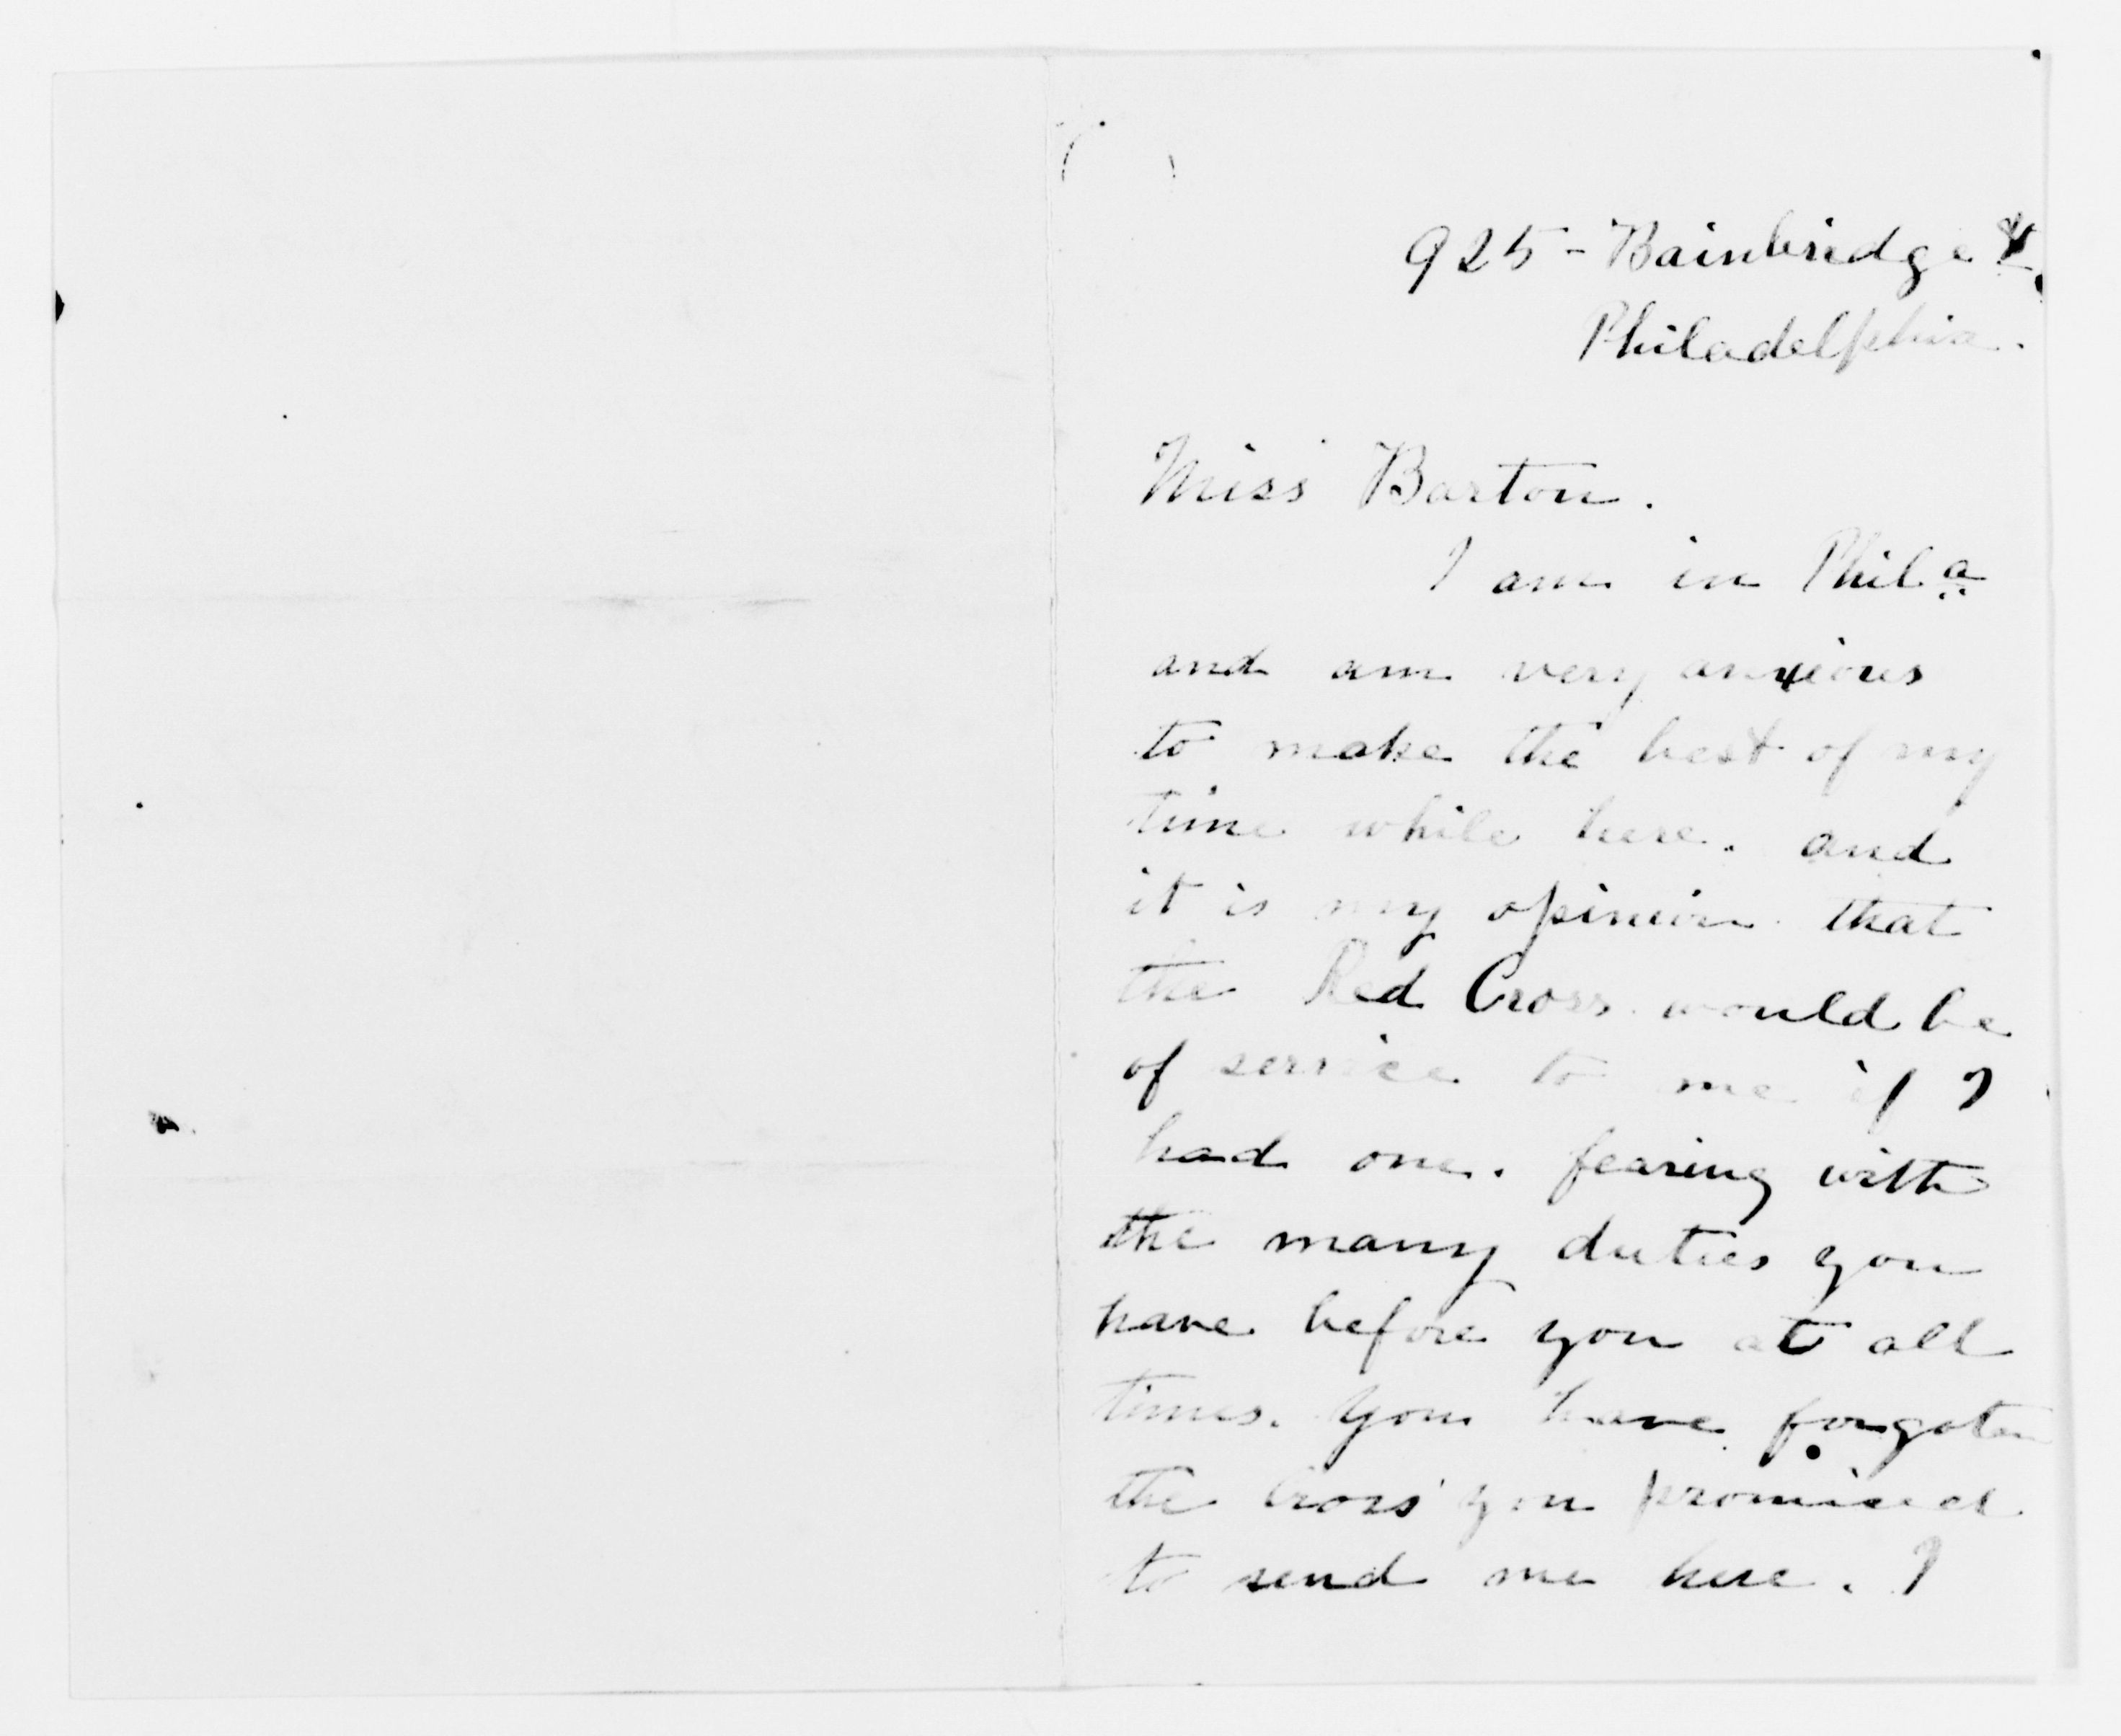 925 - Bainbridge St
Philadelphia.
Miss Barton.
I am in Phila
and am very anxious
to make the best of my
time while here. and
it is my opinion that
the Red Cross would be
of service to me if I
had one. fearing with
the many duties you
have before you at all
times. you have forgoten
the Cross you promised
to send me here. I